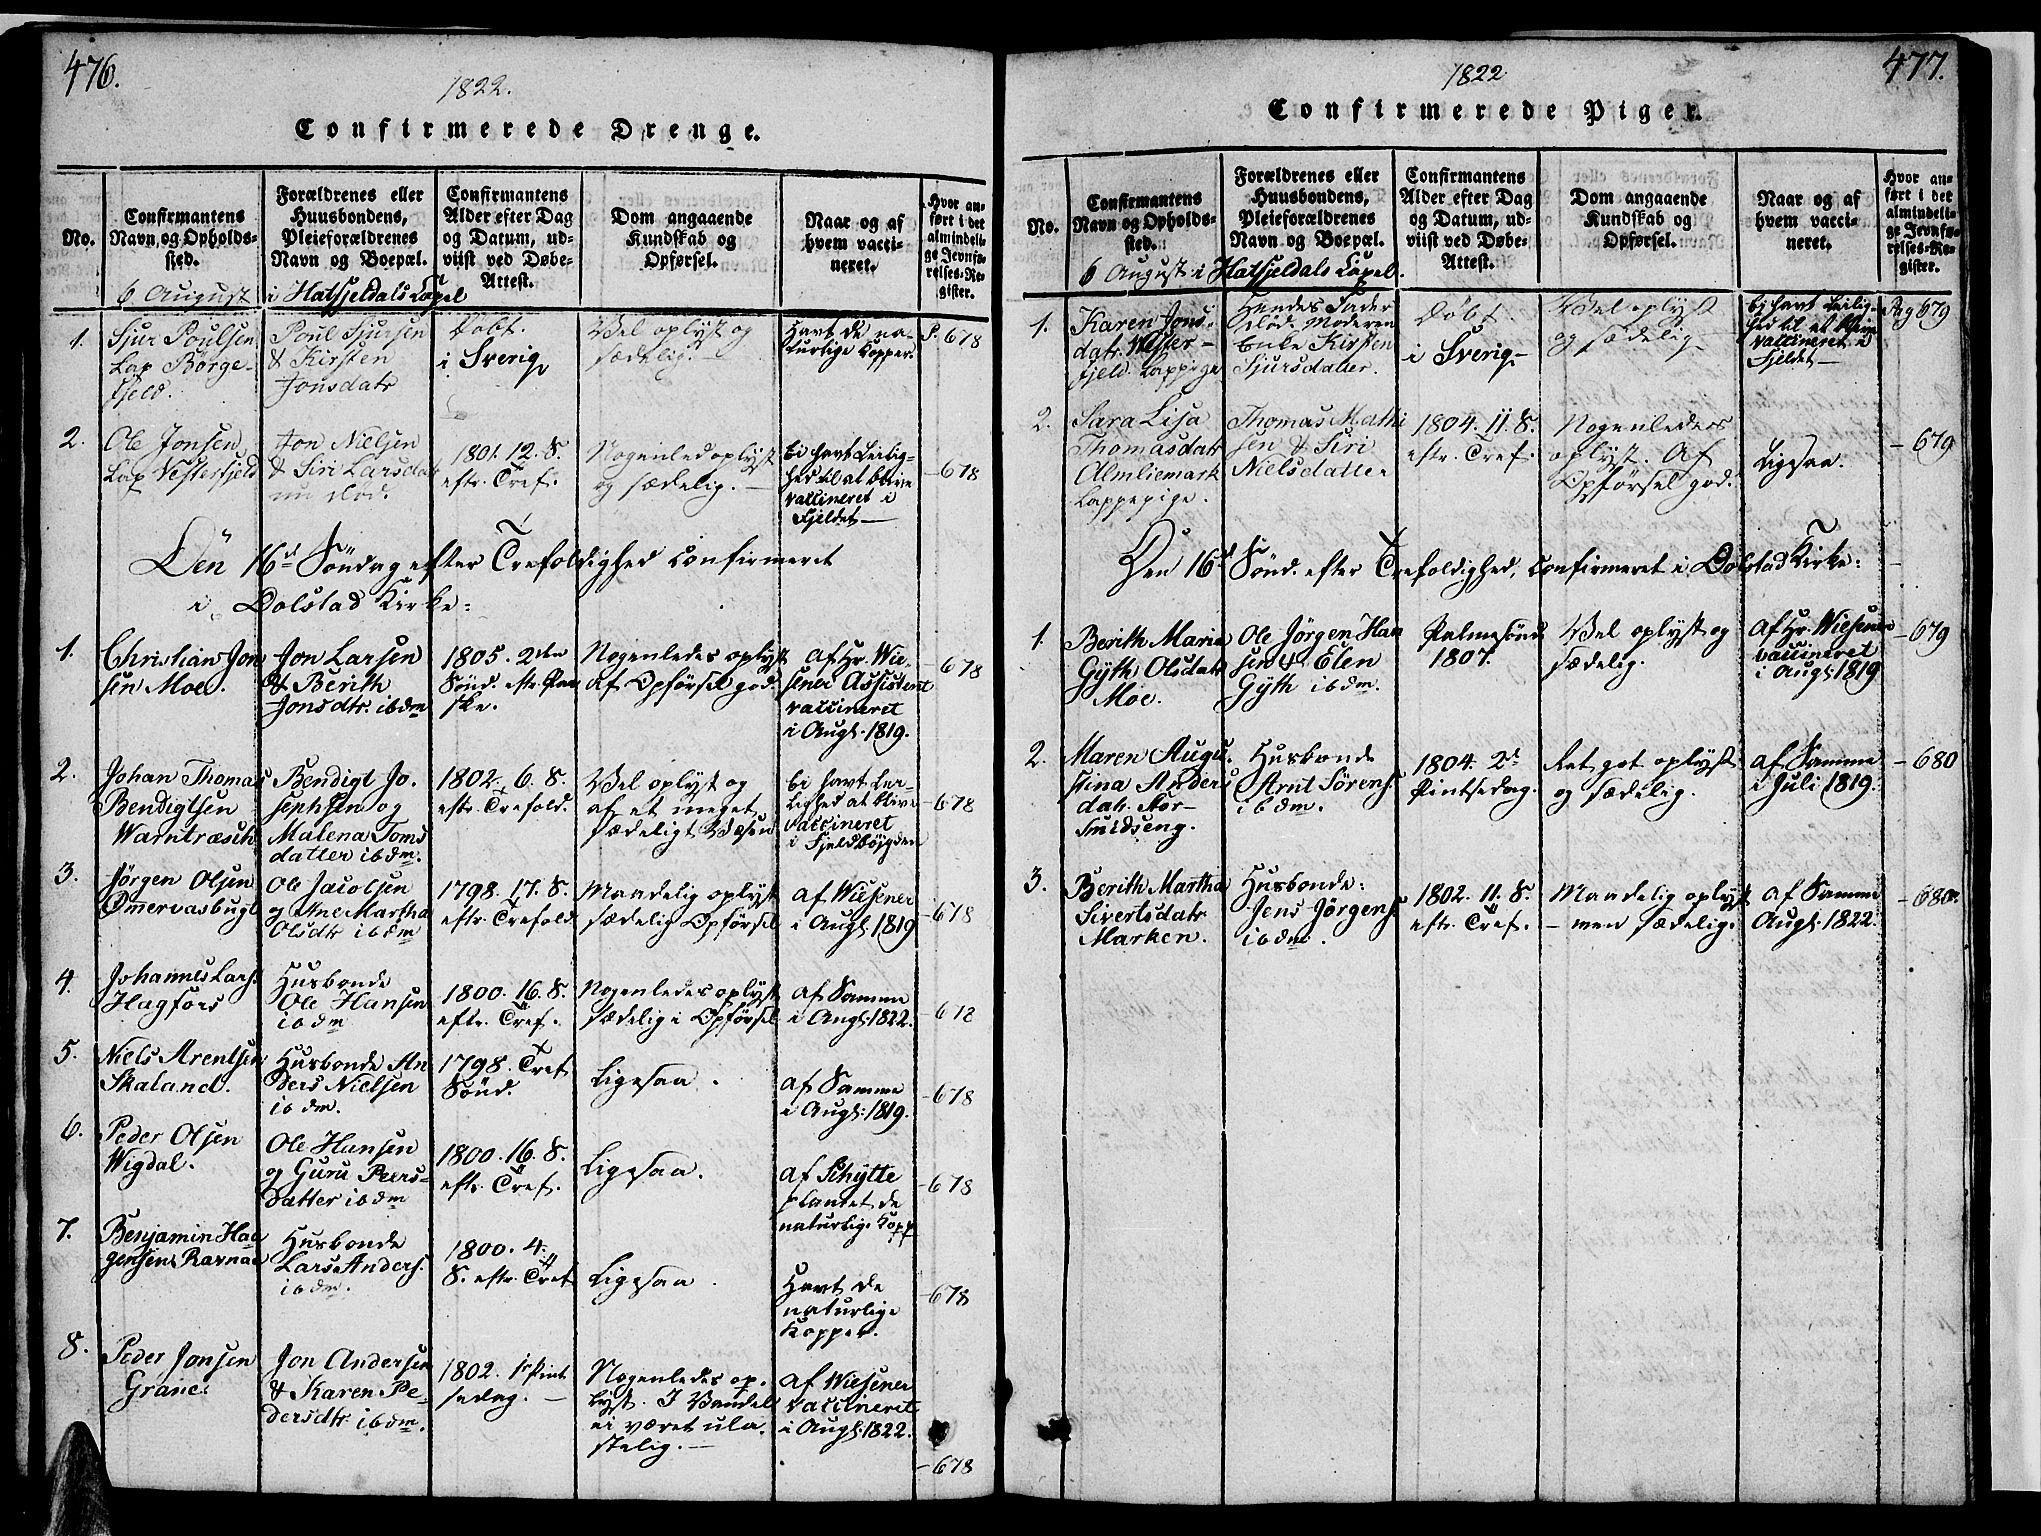 476.
1822.
Confirmerede Drenge.
No.
Confirmantens
Navn og Opholds-
sted.
Forældrenes eller
Huusbondens,
Pleieforældrenes
Navn og Boepæl.
Confirmantens
Alder efter Dag
og Datum, ud-
viist ved Døbe-
Attest.
Dom angaaende
Kundskab og
Opførsel.
Naar og af
hvem vacci-
neret.
Hvor an-
ført i det
almindeli-
ge Jevnfø-
relses-Re-
gister.
6 August i Hatfjeldals Capel
1.
Sjur Poulsen
Lap Børge-
fjeld.
Poul Sjursen
& Kirsten
Jonsdatr
Døbt
i Sverig
Vel oplyst og
sædelig. -
Havt de na-
turlige Kopper.
P. 678
2.
Ole Jonsen
Lap Vesterfjeld
Jon Nielsen
& Siri Larsdatr
nu død.
1801. 12. S.
eftr. Tref.
Nogenled oplyst
og sædelig. -
Ei havt Leilig-
hed til at blive
vaccineret i
Fjeldet -
- 678
Den 16d Søndag efter Trefoldighed confirmeret
i Dolstad Kirke:
1.
Christian Jon
sen Moe.
Jon Larsen
& Berith
Jonsdtr. ibdm
1805. 2den
Sønd. eftr. Paa
ske.
Nogenledes oplyst
af Opførsel god.
af Hr. Wie-
sener Assistent
vaccineret
i Augt. 1819.
- 678
2.
Johan Thomas
Bendigtsen
Warntræsch
Bendigt Jo-
sephsen og
Malena Toms
datter ibdm.
1802. 6. S.
eftr. Trefold.
Vel oplyst og
af et meget
sædeligt Væsen
Ei havt Lei-
lighed at blive
vaccineret
i Fjeldbøygden
- 678
3.
Jørgen Olsen
Ømervasbugt
Ole Jacobsen
og Ane Martha
Olsdtr ibdm
1798. 17. S.
eftr. Trefold
Maadelig oplyst
sædelig Opførsel
af Wiesener
i Augt. 1819
- 678
4.
Johannes Lars.
Hagfors
Husbonde
Ole Hansen
ibdm
1800. 16. S.
eftr. Tref.
Nogenledes oplyst
sædelig i Opførsel
af Samme
i Augt. 1822.
- 678
5.
Niels Arentsen
Skaland.
Husbonde An
ders Nielsen
ibdm.
1798. Tref
Sønd.
Ligesaa.
af Samme
i Augt. 1819.
- 678
6.
Peder Olsen
Wigdal.
Ole Hansen
og Guru Peers-
datter ibdm
1800. 16. S.
eftr. Tref.
Ligesaa.
af Schytte
plantet de
naturlig. Kopp
- 678
7.
Benjamin Haa
gensen Ravnaa
Husbonde
Lars Anders.
ibdm.
1800. 4.
S. eftr. Tref
Ligesaa.
Havt de
naturlige
Kopper.
- 678
8.
Peder Jonsen
Grane.
Jon Andersen
& Karen Pe-
dersdtr. ibdm.
1802. 1r Pint
sedag. -
Nogenledes op-
lyst. I Vandel
ei været ula-
stelig. -
af Wiesener
vaccineret
i Augt. 1822.
- 678
477.
1822
Confirmerede Piger.
No.
Confirmantens
Navn og Opholds-
sted.
Forældrenes eller
Huusbondens,
Pleieforældrenes
Navn og Boepæl.
Confirmantens
Alder efter Dag
og Datum, ud-
viist ved Døbe-
Attest.
Dom angaaende
Kundskab og
Opførsel.
Naar og af
hvem vacci-
neret.
Hvor an-
ført i det
almindeli-
ge Jevnfø-
relses-Re-
gister.
6 August i Hatfjeldals Capel.
1.
Karen Jons-
datr. Vester-
fjeld. Lappige
Hendes Fader
død. Moderen
Enke Kirsten
Sjursdatter.
Døbt
i Sverig -
Vel oplyst
og sædelig
Ei havt Leilig-
hed til at blive
vaccineret i
Fjeldet -
Pag 679
2.
Sara Lisa
Thomasdatr
Almliemark
Lappepige.
Thomas Mathi
sen & Siri
Nielsdatter
1804. 11. S.
eftr. Tref.
Nogenledes
oplyst. Af
Opførsel god.
Ligsaa.
- 679
Den 16d Sønd. efter Trefoldighed, confirmeret i Dolstad Kirke:
1.
Berith Maria
Gyth Olsdatr
Moe.
Ole Jørgen Han
sen & Elen
Gyth ibdm.
Palmesønd
1807.
Vel oplyst og
sædelig.
Af Hr. Wiesener
vaccineret
i Augt 1819
- 679
2.
Maren Augu-
stina Anders
datr. Stor-
Smidseng.
Husbonde
Arnt Sørens.
ibdm.
1804. 2d
Pintsedag.
Ret got oplyst
og sædelig.
af Samme
i Juli 1819.
- 680
3.
Berith Martha
Sivertsdatr
Marken.
Husbonde:
Jens Jørgens.
ibdm.
1802. 11. S.
eftr. Tref.
Maadelig oplyst
- men sædelig.
af Samme
Augt. 1822.
- 680.